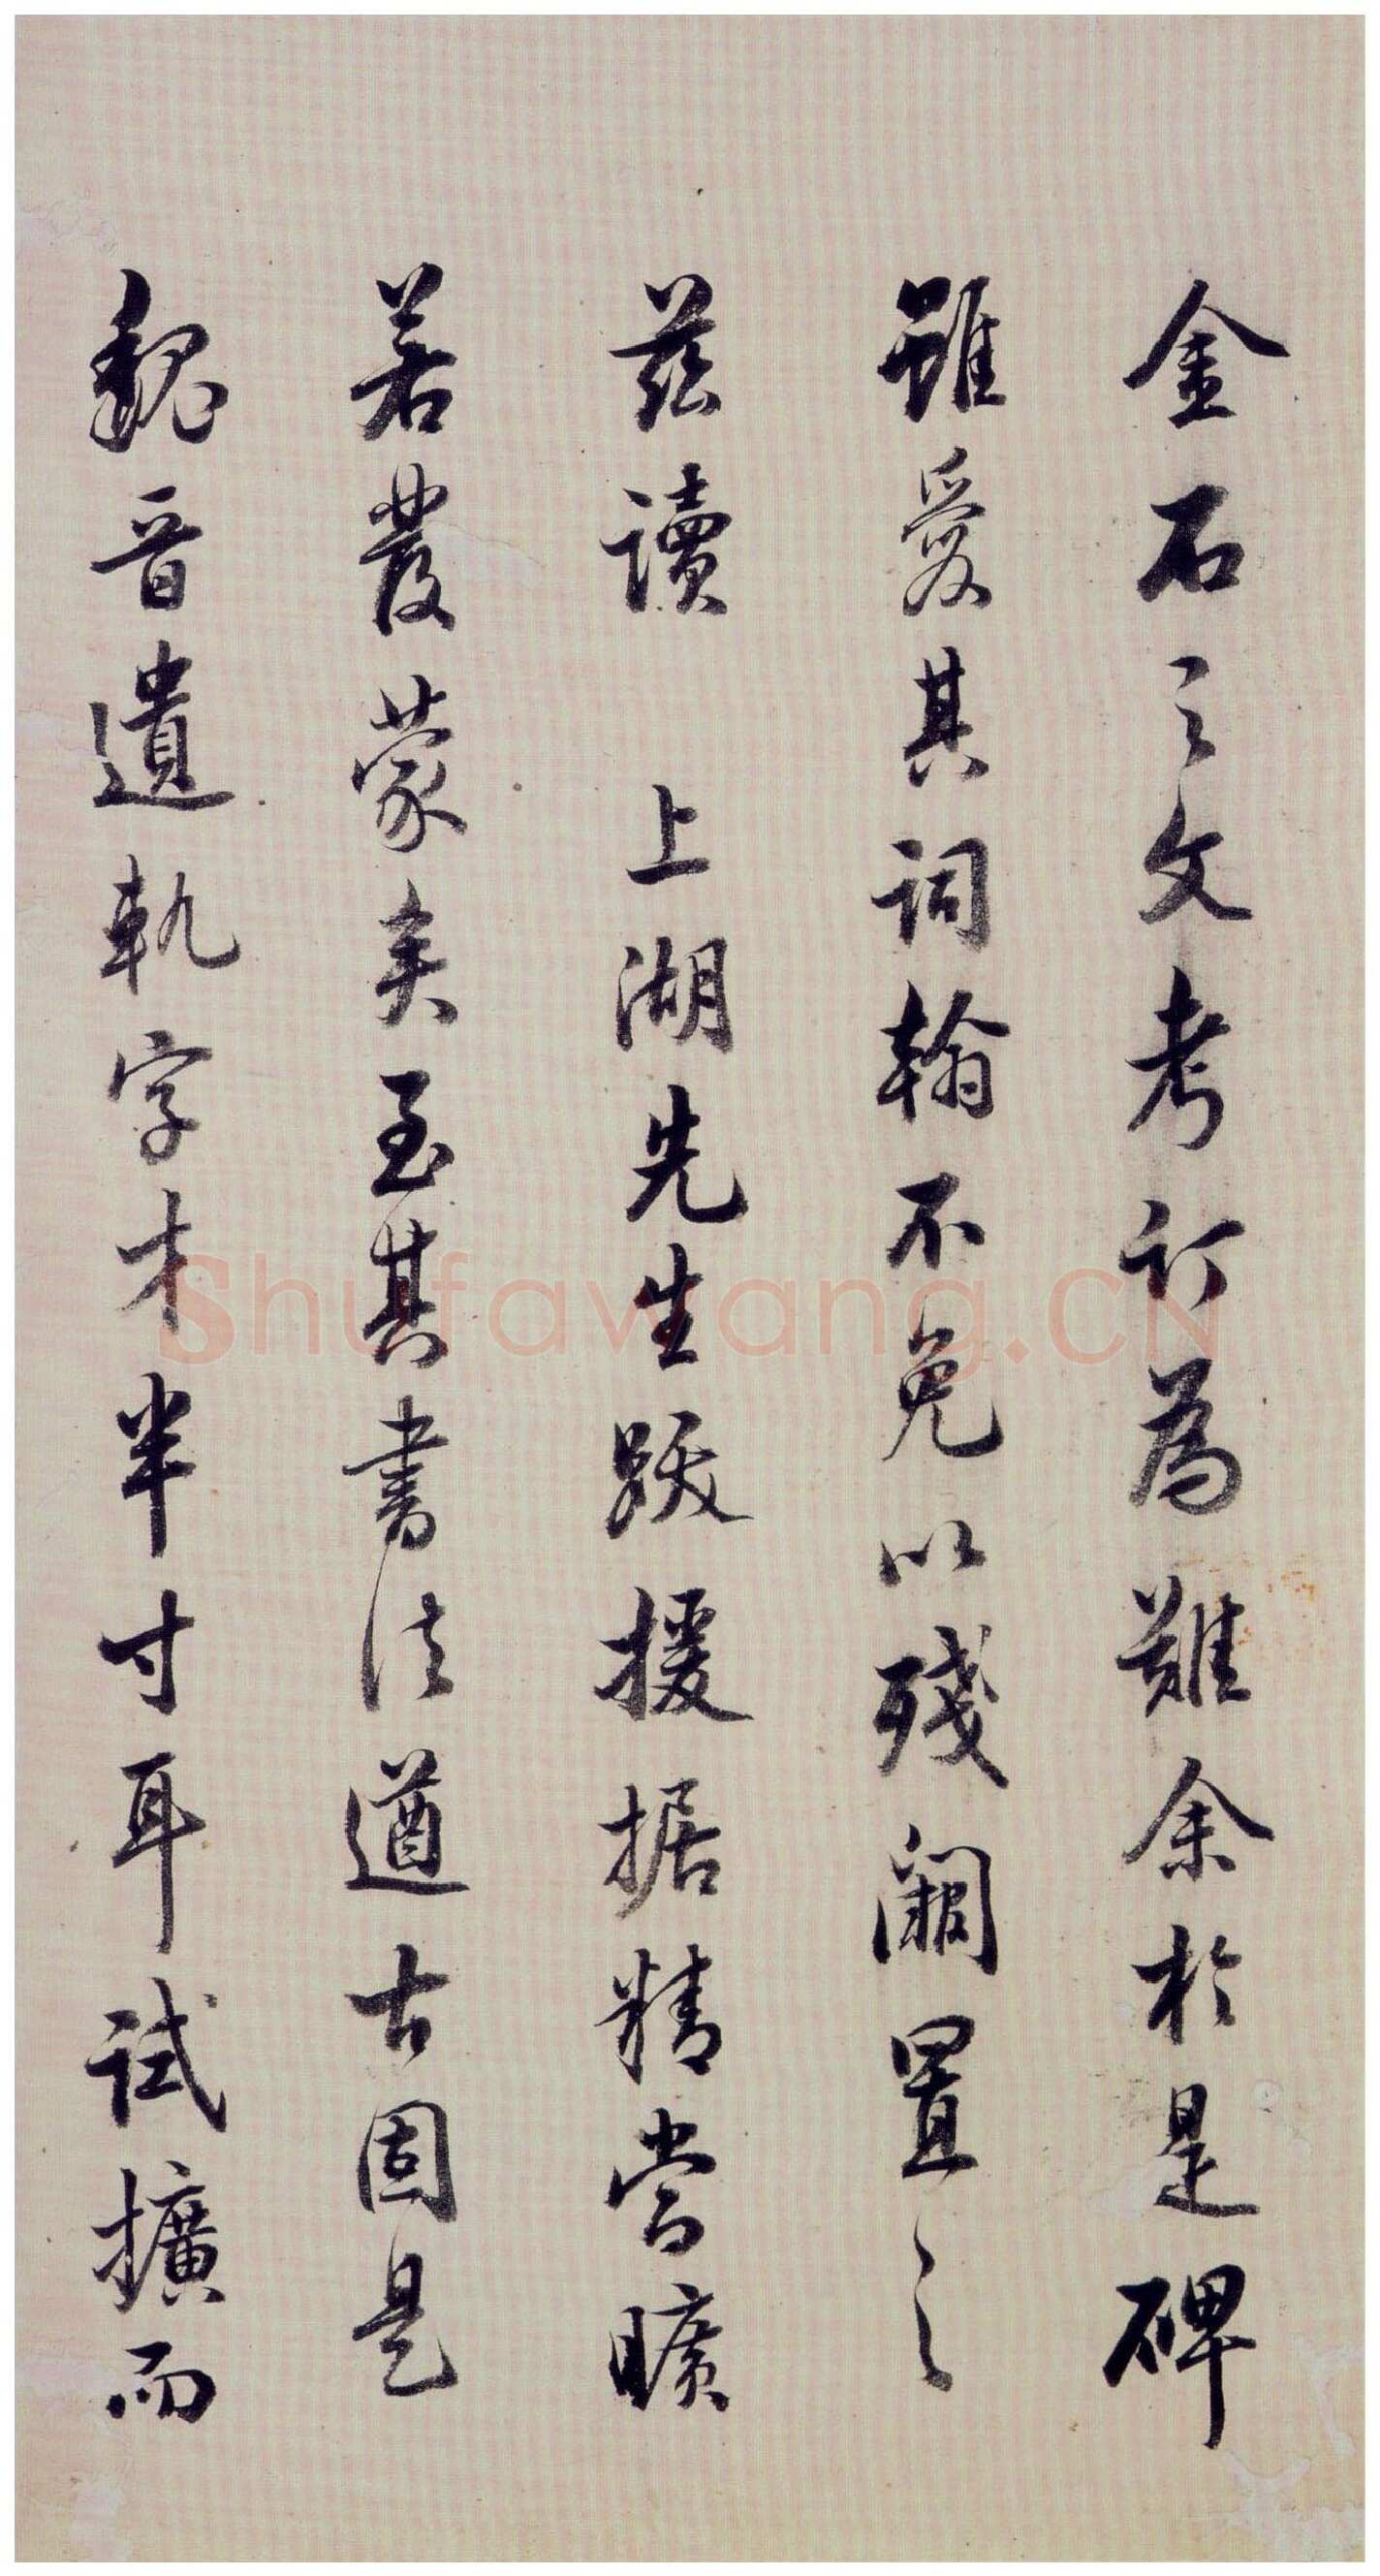 金石之文考訂為難余於是碑
雖愛其詞翰不免以殘闕置之
茲讀　上湖先生跋援据精當曠
若發蒙矣至其書法遒古固是
魏晉遺軌字才半寸耳試擴而
Shufawang.CN